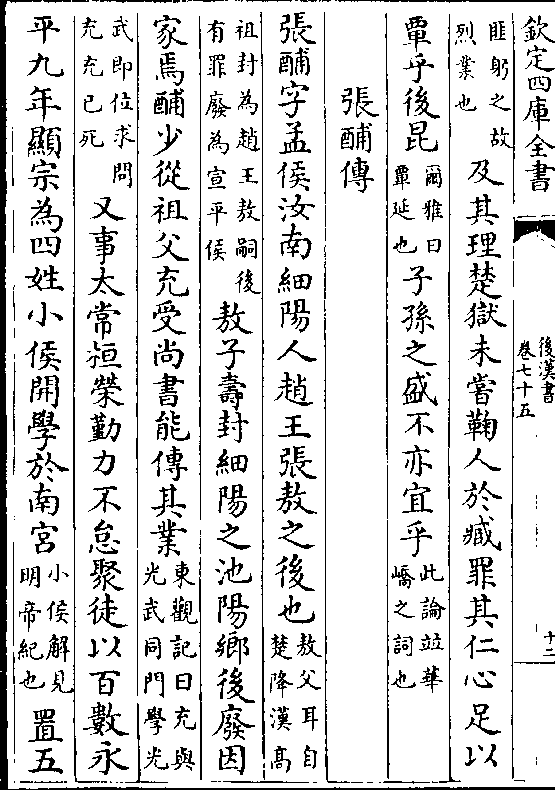 欽定四庫全書
後漢書
卷七十五
十二
匪躬之故
烈業也
及其理楚獄未嘗鞠人於臧罪其仁心足以
覃乎後昆
爾雅曰
覃延也
子孫之盛不亦宜乎
此論竝華
嶠之詞也
張酺傳
張酺字孟侯汝南細陽人趙王張敖之後也
敖父耳自
楚降漢髙
祖封為趙王敖嗣後
有罪廢為宣平侯
敖子壽封細陽之池陽鄉後廢因
家焉酺少從祖父充受尚書能傳其業
東觀記曰充與
光武同門學光
武即位求問
充充已死
又事太常桓榮勤力不怠聚徒以百數永
平九年顯宗為四姓小侯開學於南宮
小侯解見
明帝紀也
置五